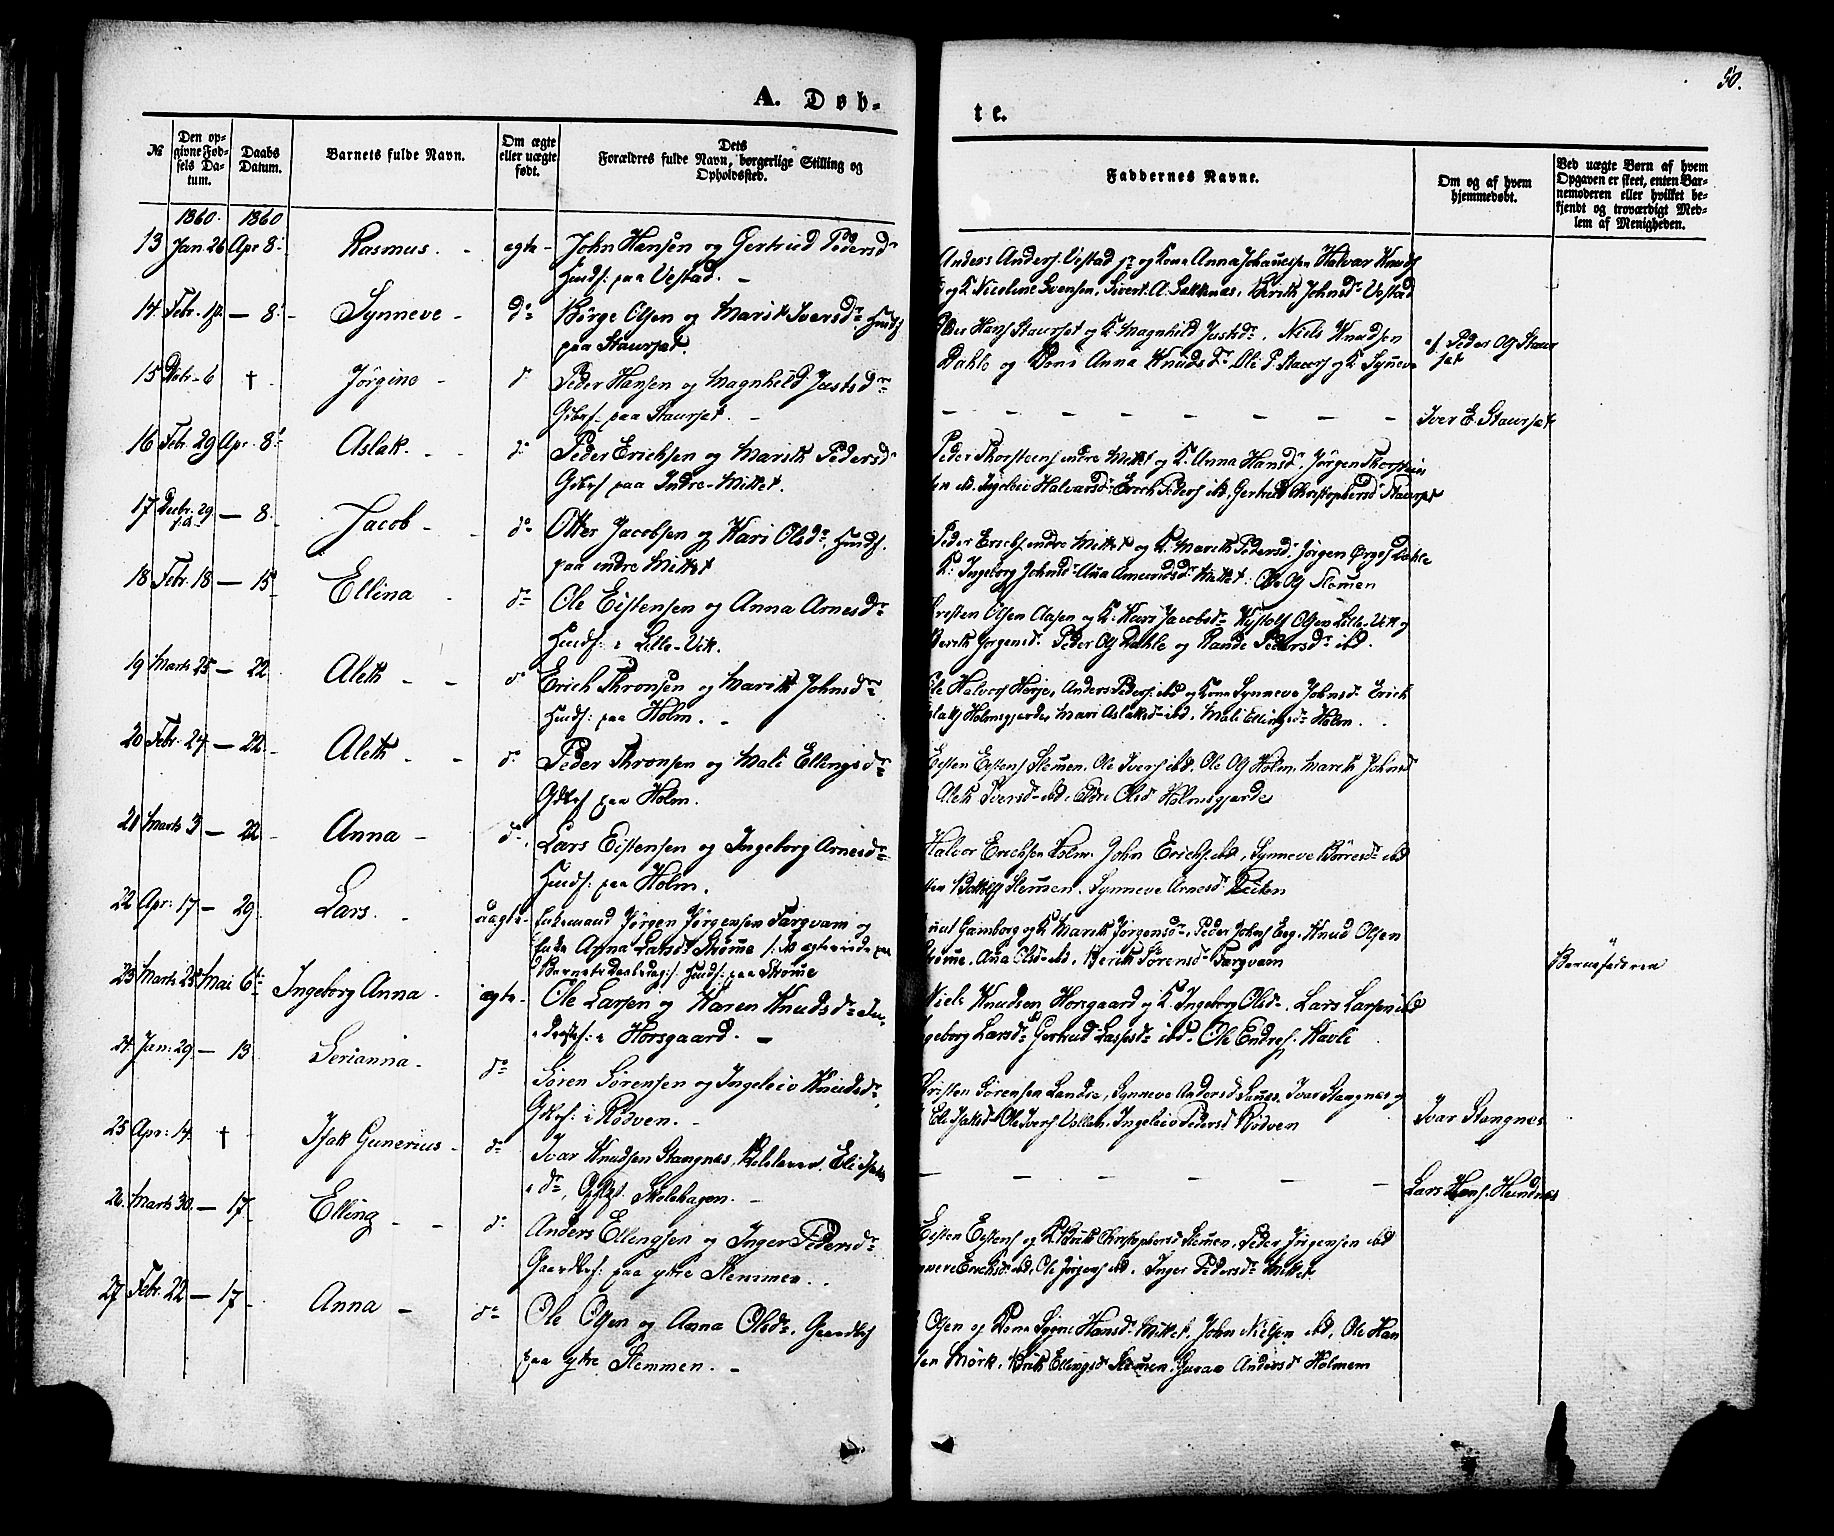 50.
A. Døb-
te.
№
Den op-
givne Fød-
sels Da-
tum.
Daabs
Datum.
Barnets fulde Navn.
Om ægte
eller uægte
født.
Dets
Forældres fulde Navn, borgerlige Stilling og
Opholdssted.
Faddernes Navne.
Om og af hvem
hjemmedøbt.
Ved uægte Børn af hvem
Opgaven er skeet, enten Bar-
nemoderen eller hvilket be-
kjendt og troværdigt Med-
lem af Menigheden.
1860. 1860
13 Jan 26 Apr 8. Rasmus. ægte John Hansen og Gertrud Pedersd
Huusf: paa Vestad.
Anders Anders. Vestad og Kone Anna Johannesen Halvar Knuds
og K Nicoline Svensen, Sivert A. Sakknæs, Berith Johnsd Vestad
14 Febr. — 8. Synneve do Børge Olsen og Marit Iversdr Huusf
paa Staurset.
Hans Staurset og K. Magnhild Justsdr. Niels Knudsen
Dahle og Kone Anna Knudsdr Ole P. Staurs og K. Synneve
af Peder Staur
set
15 Debr. 6 † Jørgine d Peder Hansen og Magnhild Justsdr
Gbrf. paa Staurset.
— — — — — — — Iver E. Staurset
16 Febr. 29 Apr. 8 Aslak. d Peder Erichsen og Marith Pedersd
Gbrf paa Indre-Mittet.
Peder Thorsteens indre Mittet og K. Anna Hansd. Jørgen Thorstein
sen ibd. Ingeleiv Halvarsd. Erich Peders ibd, Gertrud Christophersd Staurset
17 Decbr. 29 — 8. Jacob do Otter Jacobsen og Kari Olsdr. Huusf.
paa indre Mittet
Peder Erichs indre Mittet og K. Marith Pedersd. Jørgen Dahle
K. Ingeborg Johnsd Ana Amundsd Mittet. Ole Stemen
18 Febr. 18 — 15 Ellina do Ole Eistensen og Anna Arnesdr
Huusf: i Lille-Vik.
Christen Olsen og K. Kari Jacobsdr Olsen Lille-Vik og
Berith Jørgensd. Peder Dahle og Rande Pedersdr ibd.
19 Marts 25 — 22 Aleth d Erich Thronsen og Marith Johnsdr
Huusf: paa Holm.
Ole Halvors Horje, Anders Peders. ibd og Kone Synneve Johnsd Erich
Aslaks Holmsgjerde, Mari Aslaksd ibd. Mali Ellingsd Holm.
20 Febr. 24. — 22 Aleth d Peder Thronsen og Mali Ellingsdr
Gbrf paa Holm.
Eisten Eistens Stemen. Ole Ivers ibd. Ole Holm. Marith Johnsd
Aleth Iversd ibd. Olsd Holmsgjerde
21 Marts 3 — 22 Anna do Lars Eistensen og Ingeborg Arnesdr
Huusf: paa Holm.
Halvor Erichsen Holm. John Erichs. ibd, Synneve Børresd ibd
Stemmen. Synneve Arnesd
22 Apr: 17 — 29 Lars. uægte Enkemand Jørgen Jørgensen Targvam og
Enke Anna Larsd Strøme
Barnets Daabsdag: Huusf: paa Strøme
Gamborg og K Marith Jørgensdr. Peder Johns Eeg. Knud Olsen
Strøme. Ana Olsd ibd. Berith Sørensd Targvam
Barnefaderen
23 Marts 25 Mai 6te Ingeborg Anna ægte Ole Larsen og Karen Knudsdr In-
derster i Horsgaard.
Niels Knudsen Horsgaard og K. Ingeborg Olsd. Lars Larsen ibd
Ingeborg Larsdr Gertrud ibd. Ole Endres. Havle
24 Jan: 29 — 13 Serianna do Søren Sørensen og Ingeleiv Knudsdr
Gbrf: i Rødven.
Christen Sørensen Landre, Synneve Andersd. Ivar Stangnes og
Eli Isaksd Ole Ivers Vollen. Ingeleiv Pedersd Rødven
25 Apr: 14 † Isak Gunerius do Ivar Knudsen Stangnes, Eli Isaks
dr, Skolehagen.
Ivar Stangnes
— — — — —
26 Marts 30 — 17. Elling d Anders Ellingsen og Inger Pedersdr
Gaardbrf: paa ytre Stemmen.
Lars Hans. Hundnes
Eisten Eistens og K Christophersd Stemen. Peder Jørgensen ibd
Synneve Erichsd ibd, Ole Jørgens ibd. Inger Pedersdr Mittet.
27 Febr. 22 — 17 Anna do Ole Olsen og Anna Olsdr. Gaardbrf
paa ytre Stemmen.
Olsen og Kone Hansd Mittet. John Nielsen ibd, Ole Han
sen Mörk. Berith Ellingsd Stemen. Andersd Holmem